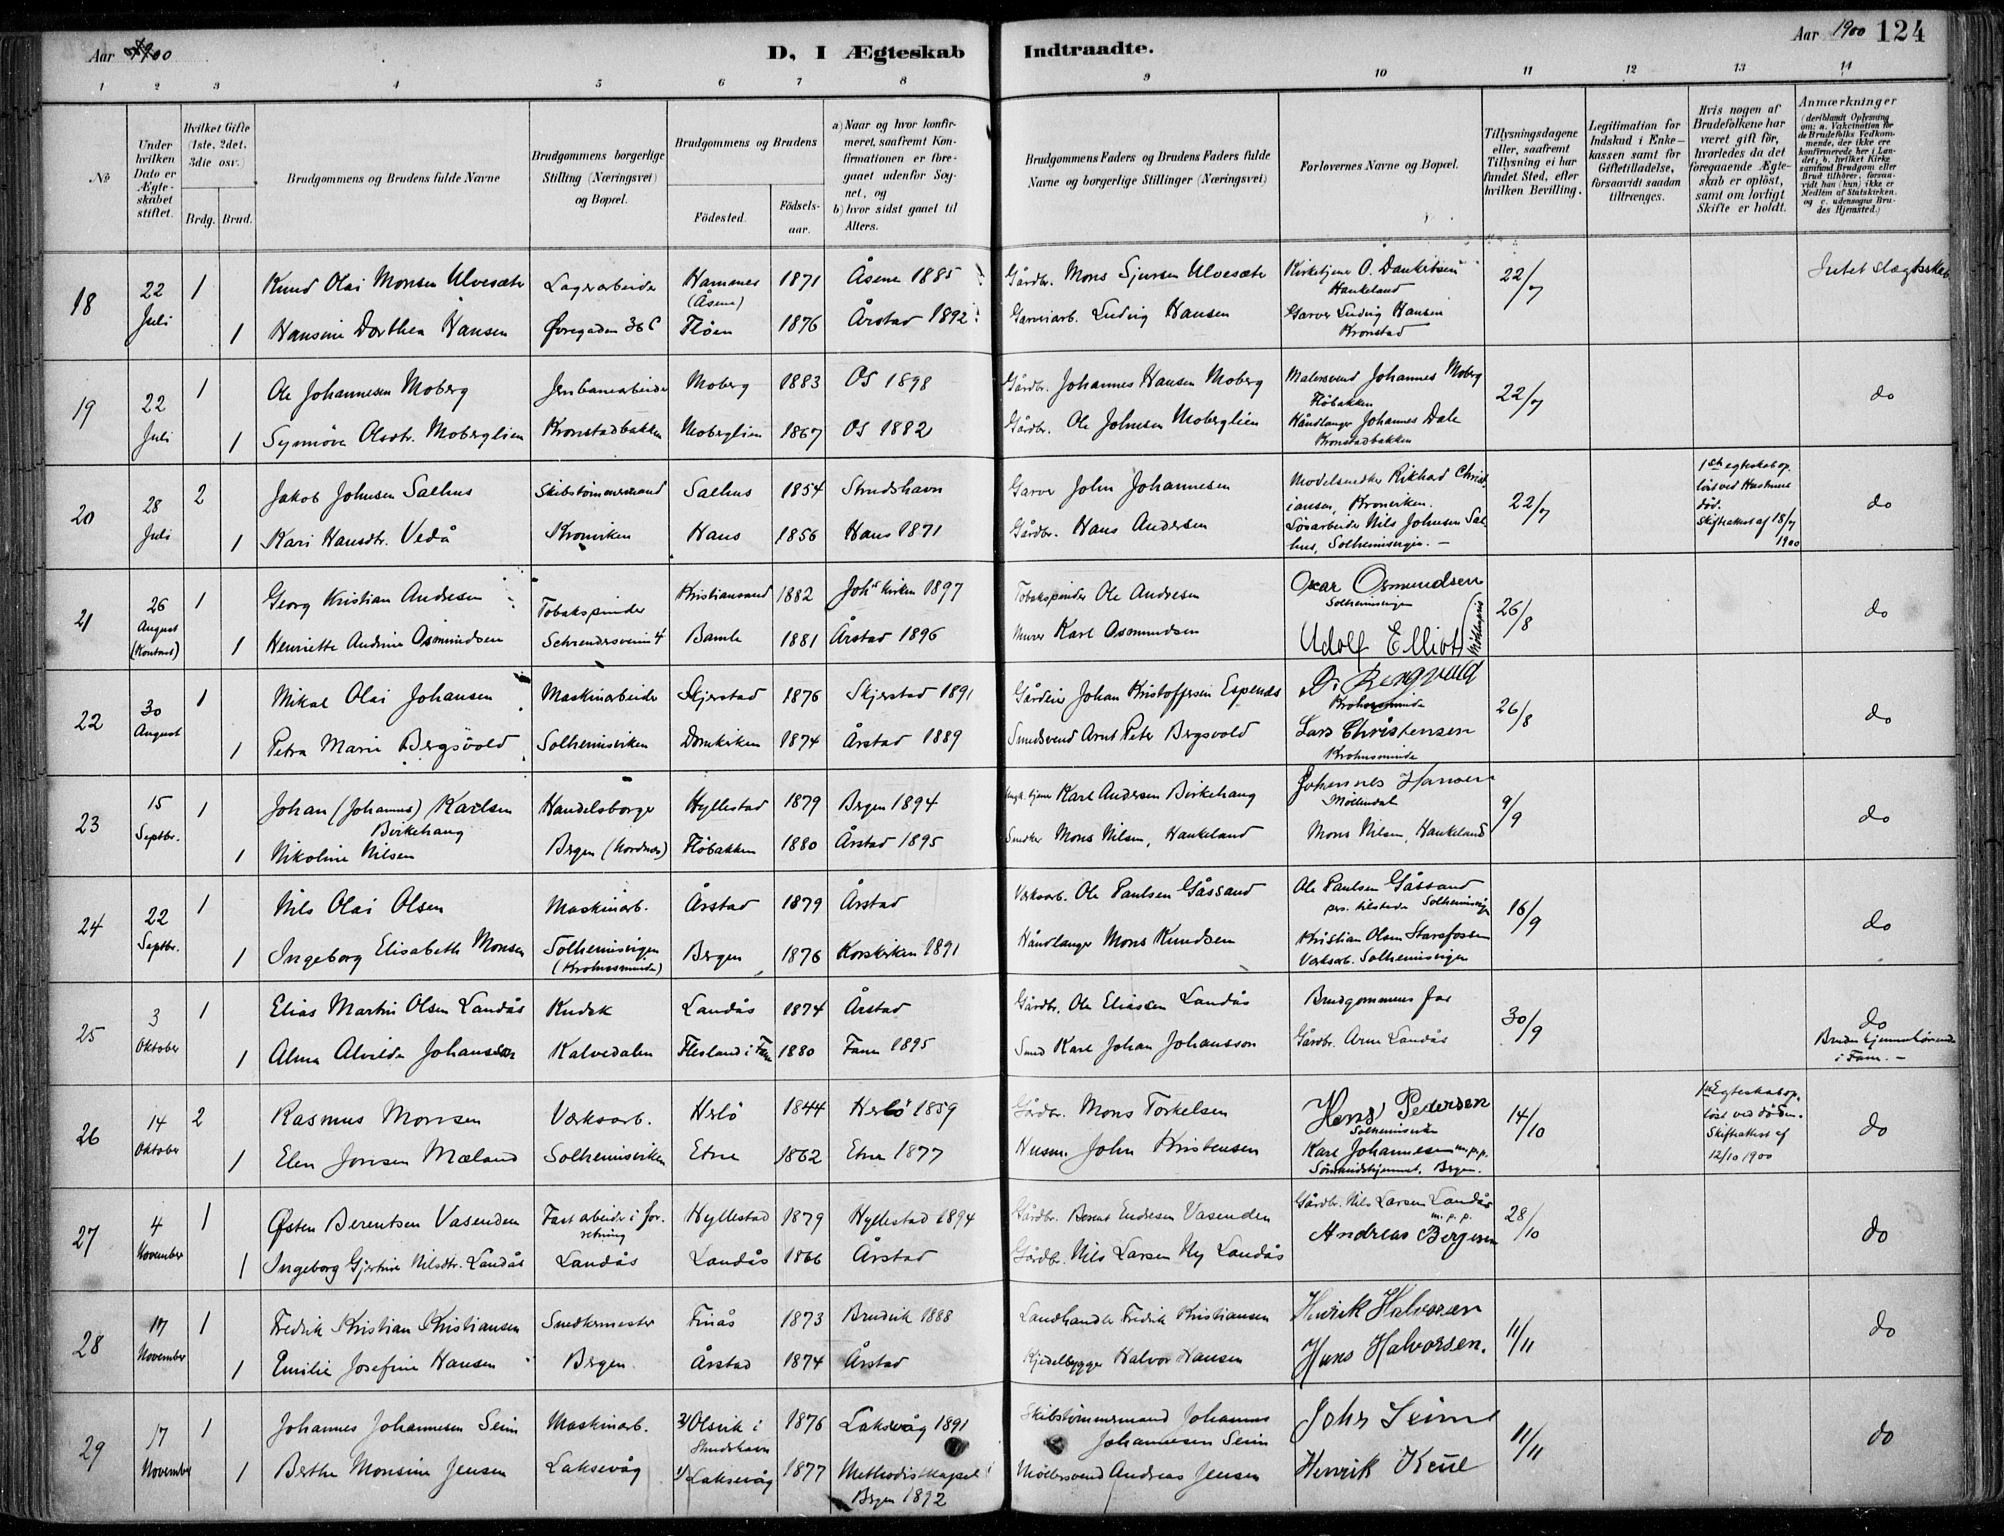 Aar 1900
D, I Ægteskab Indtraadte.
Aar 1900 124
1 2 3 4 5 6 7 8 9 10 11 12 13 14
No
Under hvilken Dato er Ægteskabet stiftet.
Hvilket Gifte (1ste, 2det, 3die osv.)
Brdg. Brud.
Brudgommens og Brudens fulde Navne
Brudgommens borgerlige Stilling (Næringsvei) og Bopæl.
Brudgommens og Brudens
Födested.
Födsels-aar.
a) Naar og hvor konfirmeret, saafremt Konfirmationen er foregaaet udenfor Sognet, og
b) hvor sidst gaaet til Alters.
Brudgommens Faders og Brudens Faders fulde Navne og borgerlige Stillinger (Næringsvei)
Forlovernes Navne og Bopæl.
Tillysningsdagene eller, saafremt Tillysning ei har fundet Sted, efter hvilken Bevilling.
Legitimation for Indskud i Enkekassen samt for Giftetilladelse, forsaavidt saadan tiltrænges.
Hvis nogen af Brudefolkene har været gift för, hvorledes da det foregaaende Ægteskab er oplöst, samt om lovligt Skifte er holdt.
Anmærkninger
(deriblandt Oplysning om: a. Vakcination for de Brudefolks Vedkommende, der ikke ere konfirmerede her i Landet; b. hvilket Kirkesamfund Brudgom eller Brud tilhører, forsaavidt han (hun) ikke er Medlem af Statskirken, og c. udensogns Brudes Hjemsted.)
18 22 Juli 1 Knud Olai Monsen Ulvesæter Lagerarbeider Hammer (Åsene) 1871 Åsene 1885 Gårdbr. Mons Sjursen Ulvesæter Kirketjener O. Dankertsen Haukeland 22/7 Intet slægtsskab
1 Hansine Dorthea Hansen Øvregaden 36 C Fløen 1876 Årstad 1892 Garveriarb. Ludvig Hansen Garver Ludvig Hansen Kronstad
19 22 Juli 1 Ole Johannesen Moberg Jernbanearbeider Moberg 1883 Os 1898 Gårdbr. Johannes Hansen Moberg Malersvend Johannes Moberg Fløbakken 22/7 do
1 Synnöve Olsdtr. Moberglien Kronstadbakken Moberglien 1867 Os 1882 Gårdbr. Ole Johnsen Moberglien Håndlanger Johannes Dale Kronstadbakken
20 28 Juli 2 Jakob Johnsen Salhus Skibstömmermand Salhus 1854 Strudshavn Garver John Johannesen Modelsnedker Rikhad Christiansen, Kronviken. 22/7 1ste egteskab opløst ved Hustruens død. Skifteattest af 18/7 1900 do
1 Kari Hansdtr. Vedå Kronviken Haus 1856 Haus 1871 Gårdbr. Hans Andersen Løsarbeider Nils Johnsen Salhus, Solheimsvigen. –
21 26 August 1 Georg Kristian Andresen Tobakspinder Kristiansand 1882 Johs kirken 1897 Tobakspinder Ole Andresen Oscar Osmundsen Solheimsvigen 26/8 do
1 Henriette Andrine Osmundsen Bamle 1881 Årstad 1896 Murer Karl Osmundsen Udolf Elliot
22 30 August 1 Mikal Olai Johansen Maskinarbeider Skjerstad 1876 Skjerstad 1891 Gårdeier Johan Kristoffersen Espenes Bergsvold 26/8 do
1 Petra Marie Bergsvold Solheimsviken Domkirken 1874 Årstad 1889 Smedsvend Arnt Peter Bergsvold Lars Christensen
23 15 Septbr. 1 Johan (Johannes) Karlsen Birkehaug Handelsborger Hyllestad 1879 Bergen 1894 Karl Andersen Birkehaug Johannes Hansen Møllendal 9/9 do
1 Nikoline Nilsen Bergen (Nordnes) Fløbakken 1880 Årstad 1895 Snedker Mons Nilsen, Haukeland Mons Nilsen, Haukeland
24 22 Septbr. 1 Nils Olai Olsen Maskinarb. Årstad 1879 Årstad Værksarb. Ole Paulsen Gåssand Ole Paulsen Gåssand pers. tilstede Solheimsvigen 16/9 do
1 Ingeborg Elisabeth Monsen Solheimsvigen 	Bergen 1876 Korskirken 1891 Håndlanger Mons Knudsen Kristian Olsen Storefossen Værksarb. Solheimsvigen
25 3 Oktober 1 Elias Martin Olsen Landås Kudsk Landås 1874 Årstad Gårdbr. Ole Eliassen Landås Brudgommens far 30/9 do
1 Alma Alvilde Johansson Kalvedalen Flesland i Fane 1880 Fane 1895 Smed Karl Johan Johansson Gårdbr. Arne Landås Bruden hjemmehørende i Fane. –
26 14 Oktober 2 Rasmus Monsen Værksarb. Herlö 1844 Herlö 1859 Gårdbr. Mons Torkelsen Hans Pedersen Solheimsviken 14/10 1ste Egteskab opløst ved døden. Skifteattest af 12/10 1900 do
1 Elen Jonsen Mæland Solheimsviken Etne 1862 Etne 1877 Husm. John Kristensen Karl Johannesen m.p.p. Sömandshjemmet, Bergen.
27 4 November 1 Østen Berentsen Vasenden Fast arbeide i forretning Hyllestad 1879 Hyllestad 1894 Gårdbr. Berent Endresen Vasenden Gårdbr. Nils Larsen Landås m.p.p. 28/10 do
1 Ingeborg Gjertine Nilsdtr. Landås Landås Landås 1866 Årstad Gårdbr. Nils Larsen Ny Landås Andreas Bergesen
28 17 November 1 Fredrik Kristian Kristiansen Snedkermester Finås 1873 Bruvik 1888 Landhandler Fredrik Kristiansen Henrik Halvorsen 11/11 do
1 Emilie Josefine Hansen Bergen. Årstad 1874 Årstad Kjedelbygger Halvor Hansen Hans Halvorsen.
29 17 November 1 Johannes Johannesen Seim Maskinarb. 2) Olsvik i Strudshavn 1876 Laksevåg 1891 Skibstömmermand Johannes Johannesen Seim Johs Seim 11/11 do
1 Berthe Monsine Jensen Laksevåg 1) Laksevåg 1877 Methodistkapel Bergen 1892 Møllersvend Andreas Jensen Henrik Keül